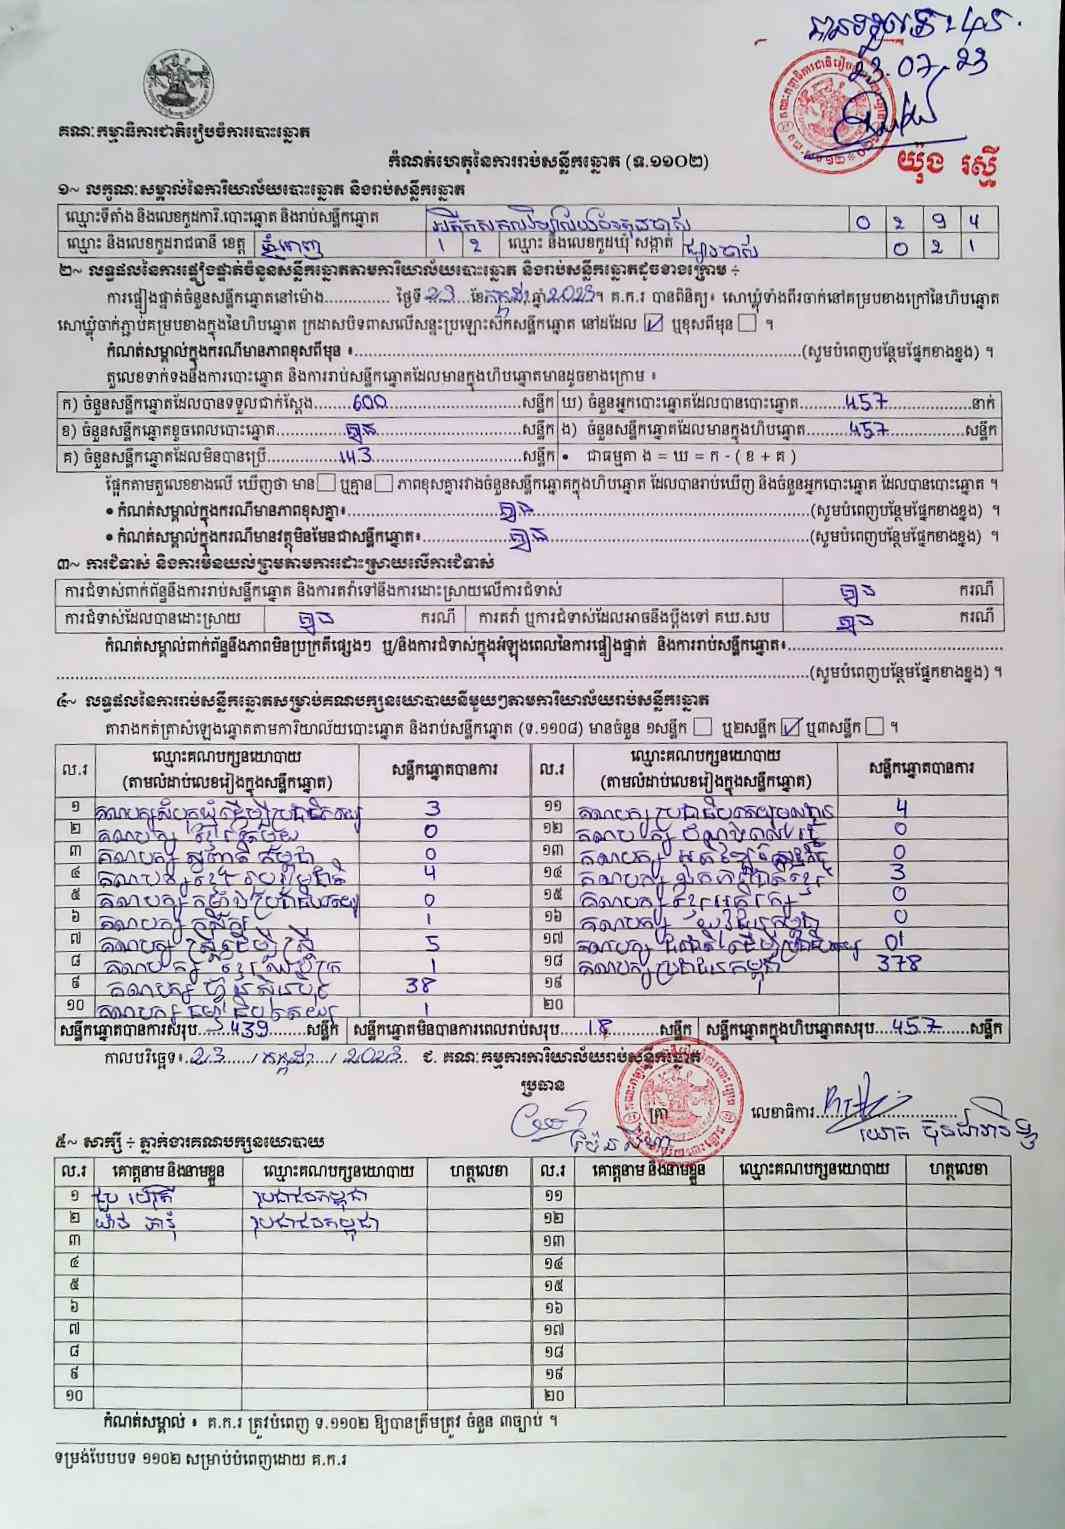 ២៣.07.23
គណៈកម្មាធិការជាតិរៀបចំការបោះឆ្នោត
កំណត់ហេតុនៃការរាប់សន្លឹកឆ្នោត (ទ.១១០២)
យ៉ុង រស្មី
១~ លក្ខណៈសម្គាល់នៃការិយាល័យបោះឆ្នោត និងរាប់សន្លឹកឆ្នោត
ឈ្មោះទីតាំង និងលេខកូដការិ.បោះឆ្នោត និងរាប់សន្លឹកឆ្នោត 0 2 9 4
ឈ្មោះ និងលេខកូដរាជធានី ខេត្ត ភ្នំពេញ 1 2 ឈ្មោះ និងលេខកូដឃុំ សង្កាត់ 0 2 1
២~ លទ្ធផលនៃការផ្ទៀងផ្ទាត់ចំនួនសន្លឹកឆ្នោតតាមការិយាល័យបោះឆ្នោត និងរាប់សន្លឹកឆ្នោតដូចខាងក្រោម ÷
ការផ្ទៀងផ្ទាត់ចំនួនសន្លឹកឆ្នោតនៅម៉ោង.............. ថ្ងៃទី 23 ខែ កក្កដា ឆ្នាំ 2023 ។ គ.ក.រ បានពិនិត្យ៖ សោឃ្លុំទាំងពីរចាក់នៅគម្របខាងក្រៅនៃហិបឆ្នោត
សោឃ្លុំចាក់ភ្ជាប់គម្របខាងក្នុងនៃហិបឆ្នោត ក្រដាសបិទពាសលើសន្ទះប្រឡោះស៊កសន្លឹកឆ្នោត នៅដដែល ☑ ឬខុសពីមុន ☐ ។
កំណត់សម្គាល់ក្នុងករណីមានភាពខុសពីមុន ៖..........(សូមបំពេញបន្ថែមផ្នែកខាងខ្នង) ។
តួលេខទាក់ទងនឹងការបោះឆ្នោត និងការរាប់សន្លឹកឆ្នោតដែលមានក្នុងហិបឆ្នោតមានដូចខាងក្រោម ៖
ក) ចំនួនសន្លឹកឆ្នោតដែលបានទទួលជាក់ស្តែង........600........សន្លឹក ឃ) ចំនួនអ្នកបោះឆ្នោតដែលបានបោះឆ្នោត........457........នាក់
ខ) ចំនួនសន្លឹកឆ្នោតខូចពេលបោះឆ្នោត........គ្មាន........សន្លឹក ង) ចំនួនសន្លឹកឆ្នោតដែលមានក្នុងហិបឆ្នោត........457........សន្លឹក
គ) ចំនួនសន្លឹកឆ្នោតដែលមិនបានប្រើ........143........សន្លឹក • ជាធម្មតា ង = ឃ = ក - ( ខ + គ )
ផ្អែកតាមតួលេខខាងលើ ឃើញថា មាន ☐ ឬគ្មាន ☐ ភាពខុសគ្នារវាងចំនួនសន្លឹកឆ្នោតក្នុងហិបឆ្នោត ដែលបានរាប់ឃើញ និងចំនួនអ្នកបោះឆ្នោត ដែលបានបោះឆ្នោត ។
• កំណត់សម្គាល់ក្នុងករណីមានភាពខុសគ្នា៖........គ្មាន........(សូមបំពេញបន្ថែមផ្នែកខាងខ្នង) ។
• កំណត់សម្គាល់ក្នុងករណីមានវត្ថុមិនមែនជាសន្លឹកឆ្នោត៖........គ្មាន........(សូមបំពេញបន្ថែមផ្នែកខាងខ្នង) ។
៣~ ការជំទាស់ និងការមិនយល់ព្រមតាមការដោះស្រាយលើការជំទាស់
ការជំទាស់ពាក់ព័ន្ធនឹងការរាប់សន្លឹកឆ្នោត និងការតវ៉ាទៅនឹងការដោះស្រាយលើការជំទាស់ គ្មាន ករណី
ការជំទាស់ដែលបានដោះស្រាយ គ្មាន ករណី ការតវ៉ា ឬការជំទាស់ដែលអាចនឹងប្តឹងទៅ គឃ.សប គ្មាន ករណី
កំណត់សម្គាល់ពាក់ព័ន្ធនឹងភាពមិនប្រក្រតីផ្សេងៗ ឬ/និងការជំទាស់ក្នុងអំឡុងពេលនៃការផ្ទៀងផ្ទាត់ និងការរាប់សន្លឹកឆ្នោត៖..........
..........(សូមបំពេញបន្ថែមផ្នែកខាងខ្នង) ។
៤~ លទ្ធផលនៃការរាប់សន្លឹកឆ្នោតសម្រាប់គណបក្សនយោបាយនីមួយៗតាមការិយាល័យរាប់សន្លឹកឆ្នោត
តារាងកត់ត្រាសំឡេងឆ្នោតតាមការិយាល័យបោះឆ្នោត និងរាប់សន្លឹកឆ្នោត (ទ.១១០៨) មានចំនួន ១សន្លឹក ☐ ឬ២សន្លឹក ☑ ឬ៣សន្លឹក ☐ ។
ល.រ ឈ្មោះគណបក្សនយោបាយ (តាមលំដាប់លេខរៀងក្នុងសន្លឹកឆ្នោត) សន្លឹកឆ្នោតបានការ ល.រ ឈ្មោះគណបក្សនយោបាយ (តាមលំដាប់លេខរៀងក្នុងសន្លឹកឆ្នោត) សន្លឹកឆ្នោតបានការ
១ គណបក្សសំបុកឃ្មុំដើម្បីប្រជាធិបតេយ្យ 3 ១១ គណបក្ស 4
២ គណបក្សខ្មែររួបរួម 0 ១២ គណបក្ស 0
៣ គណបក្ស កម្ពុជា 0 ១៣ គណបក្ស 0
៤ គណបក្សខ្មែររួបរួមជាតិ 4 ១៤ គណបក្សឯកភាពជាតិខ្មែរ 3
៥ គណបក្សកម្លាំងប្រជាធិបតេយ្យ 0 ១៥ គណបក្សខ្មែរអភិរក្ស 0
៦ គណបក្សកសិករ 1 ១៦ គណបក្ស 0
៧ គណបក្សស្ត្រីដើម្បីស្ត្រី 5 ១៧ គណបក្ស 01
៨ គណបក្សខ្មែរឈប់ក្រ 1 ១៨ គណបក្សប្រជាជនកម្ពុជា 378
៩ គណបក្សហ្វ៊ុនស៊ិនប៉ិច 38 ១៩
១០ គណបក្សធម្មាធិបតេយ្យ 1 ២០
សន្លឹកឆ្នោតបានការសរុប....439....សន្លឹក សន្លឹកឆ្នោតមិនបានការពេលរាប់សរុប....18....សន្លឹក សន្លឹកឆ្នោតក្នុងហិបឆ្នោតសរុប....457....សន្លឹក
កាលបរិច្ឆេទ៖ 23 / កក្កដា / 2023 ជ. គណៈកម្មការការិយាល័យរាប់សន្លឹកឆ្នោត
ប្រធាន
ត្រា
លេខាធិការ
៥~ សាក្សី ÷ ភ្នាក់ងារគណបក្សនយោបាយ
ល.រ គោត្តនាម និងនាមខ្លួន ឈ្មោះគណបក្សនយោបាយ ហត្ថលេខា ល.រ គោត្តនាម និងនាមខ្លួន ឈ្មោះគណបក្សនយោបាយ ហត្ថលេខា
១ ប្រជាជនកម្ពុជា ១១
២ ប្រជាជនកម្ពុជា ១២
៣ ១៣
៤ ១៤
៥ ១៥
៦ ១៦
៧ ១៧
៨ ១៨
៩ ១៩
១០ ២០
កំណត់សម្គាល់ ៖ គ.ក.រ ត្រូវបំពេញ ទ.១១០២ ឱ្យបានត្រឹមត្រូវ ចំនួន ៣ច្បាប់ ។
ទម្រង់បែបបទ ១១០២ សម្រាប់បំពេញដោយ គ.ក.រ